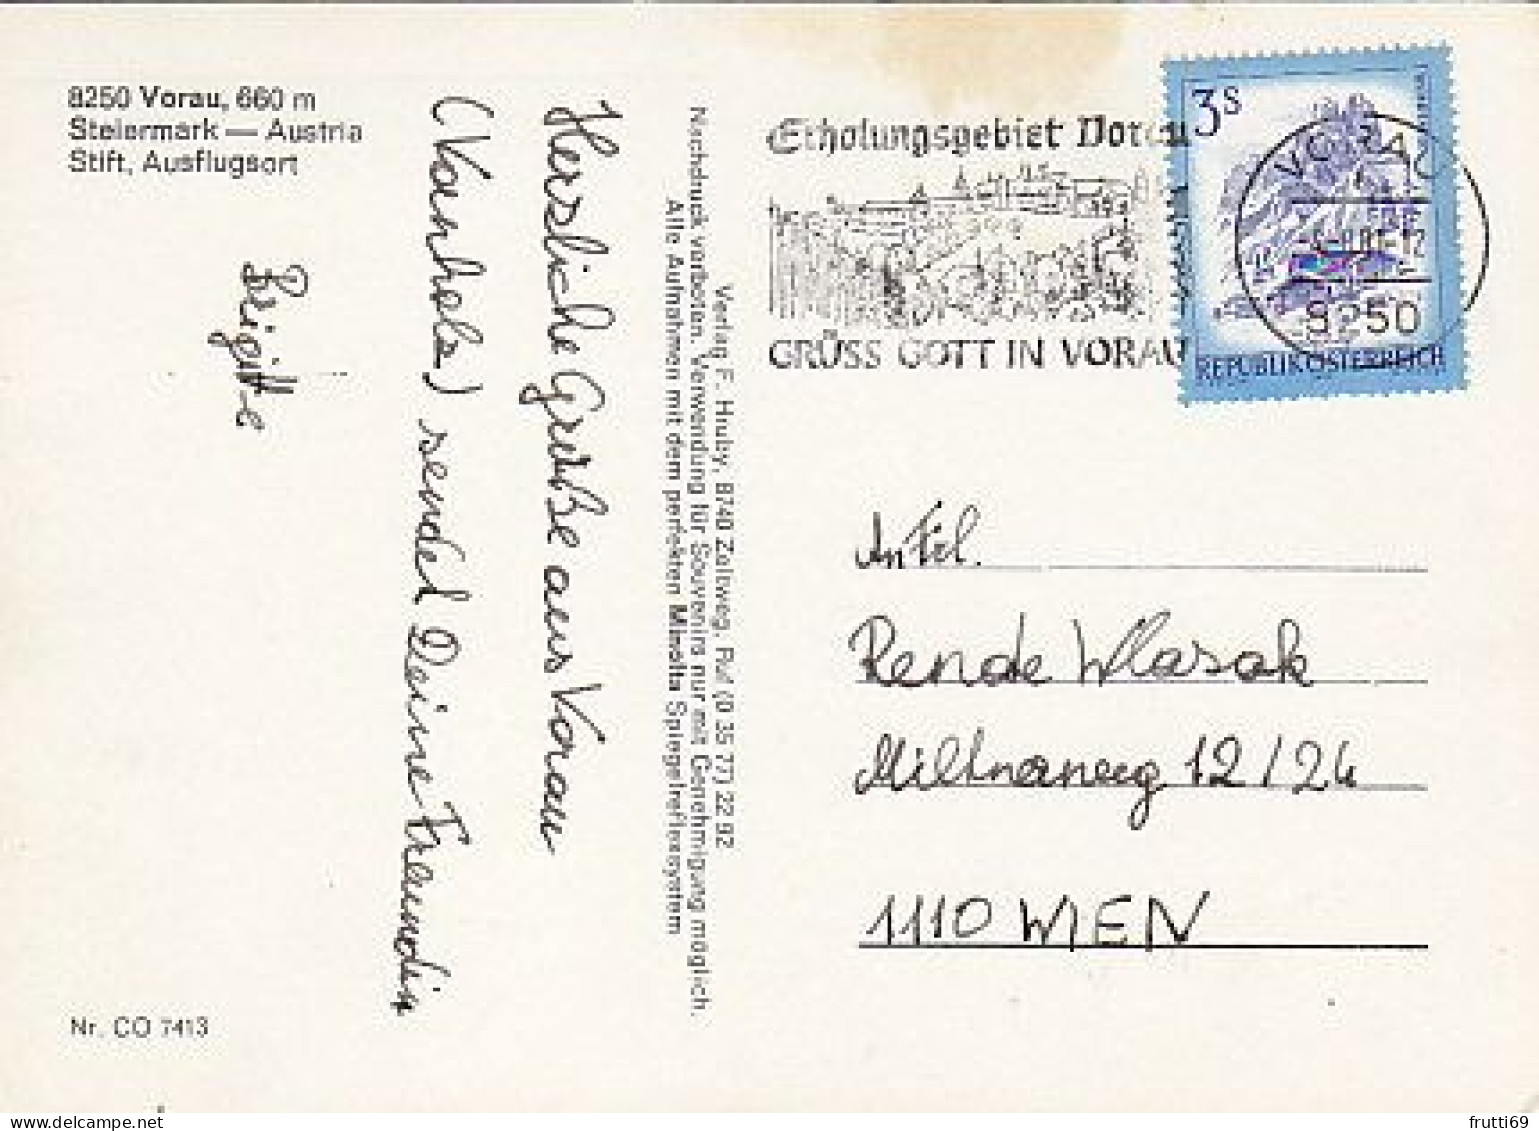 8250 Vorau, 660 m
Steiermark — Austria
Stift, Ausflugsort
Herzliche Grüße aus Vorau
sendet Deine Freundin
Brigitte
Nr. CO 7413
Verlag F. Hruby, 8740 Zeltweg, Ruf (0 35 77) 22 92
Nachdruck verboten. Verwendung für Souvenirs nur mit Genehmigung möglich.
Alle Aufnahmen mit dem perfekten Minolta Spiegelreflexsystem
Erholungsgebiet Vorau
GRÜSS GOTT IN VORAU
3s
VORAU
8250
REPUBLIK ÖSTERREICH
An Frl.
Wlasak
12/24
1110 WIEN
frutti69